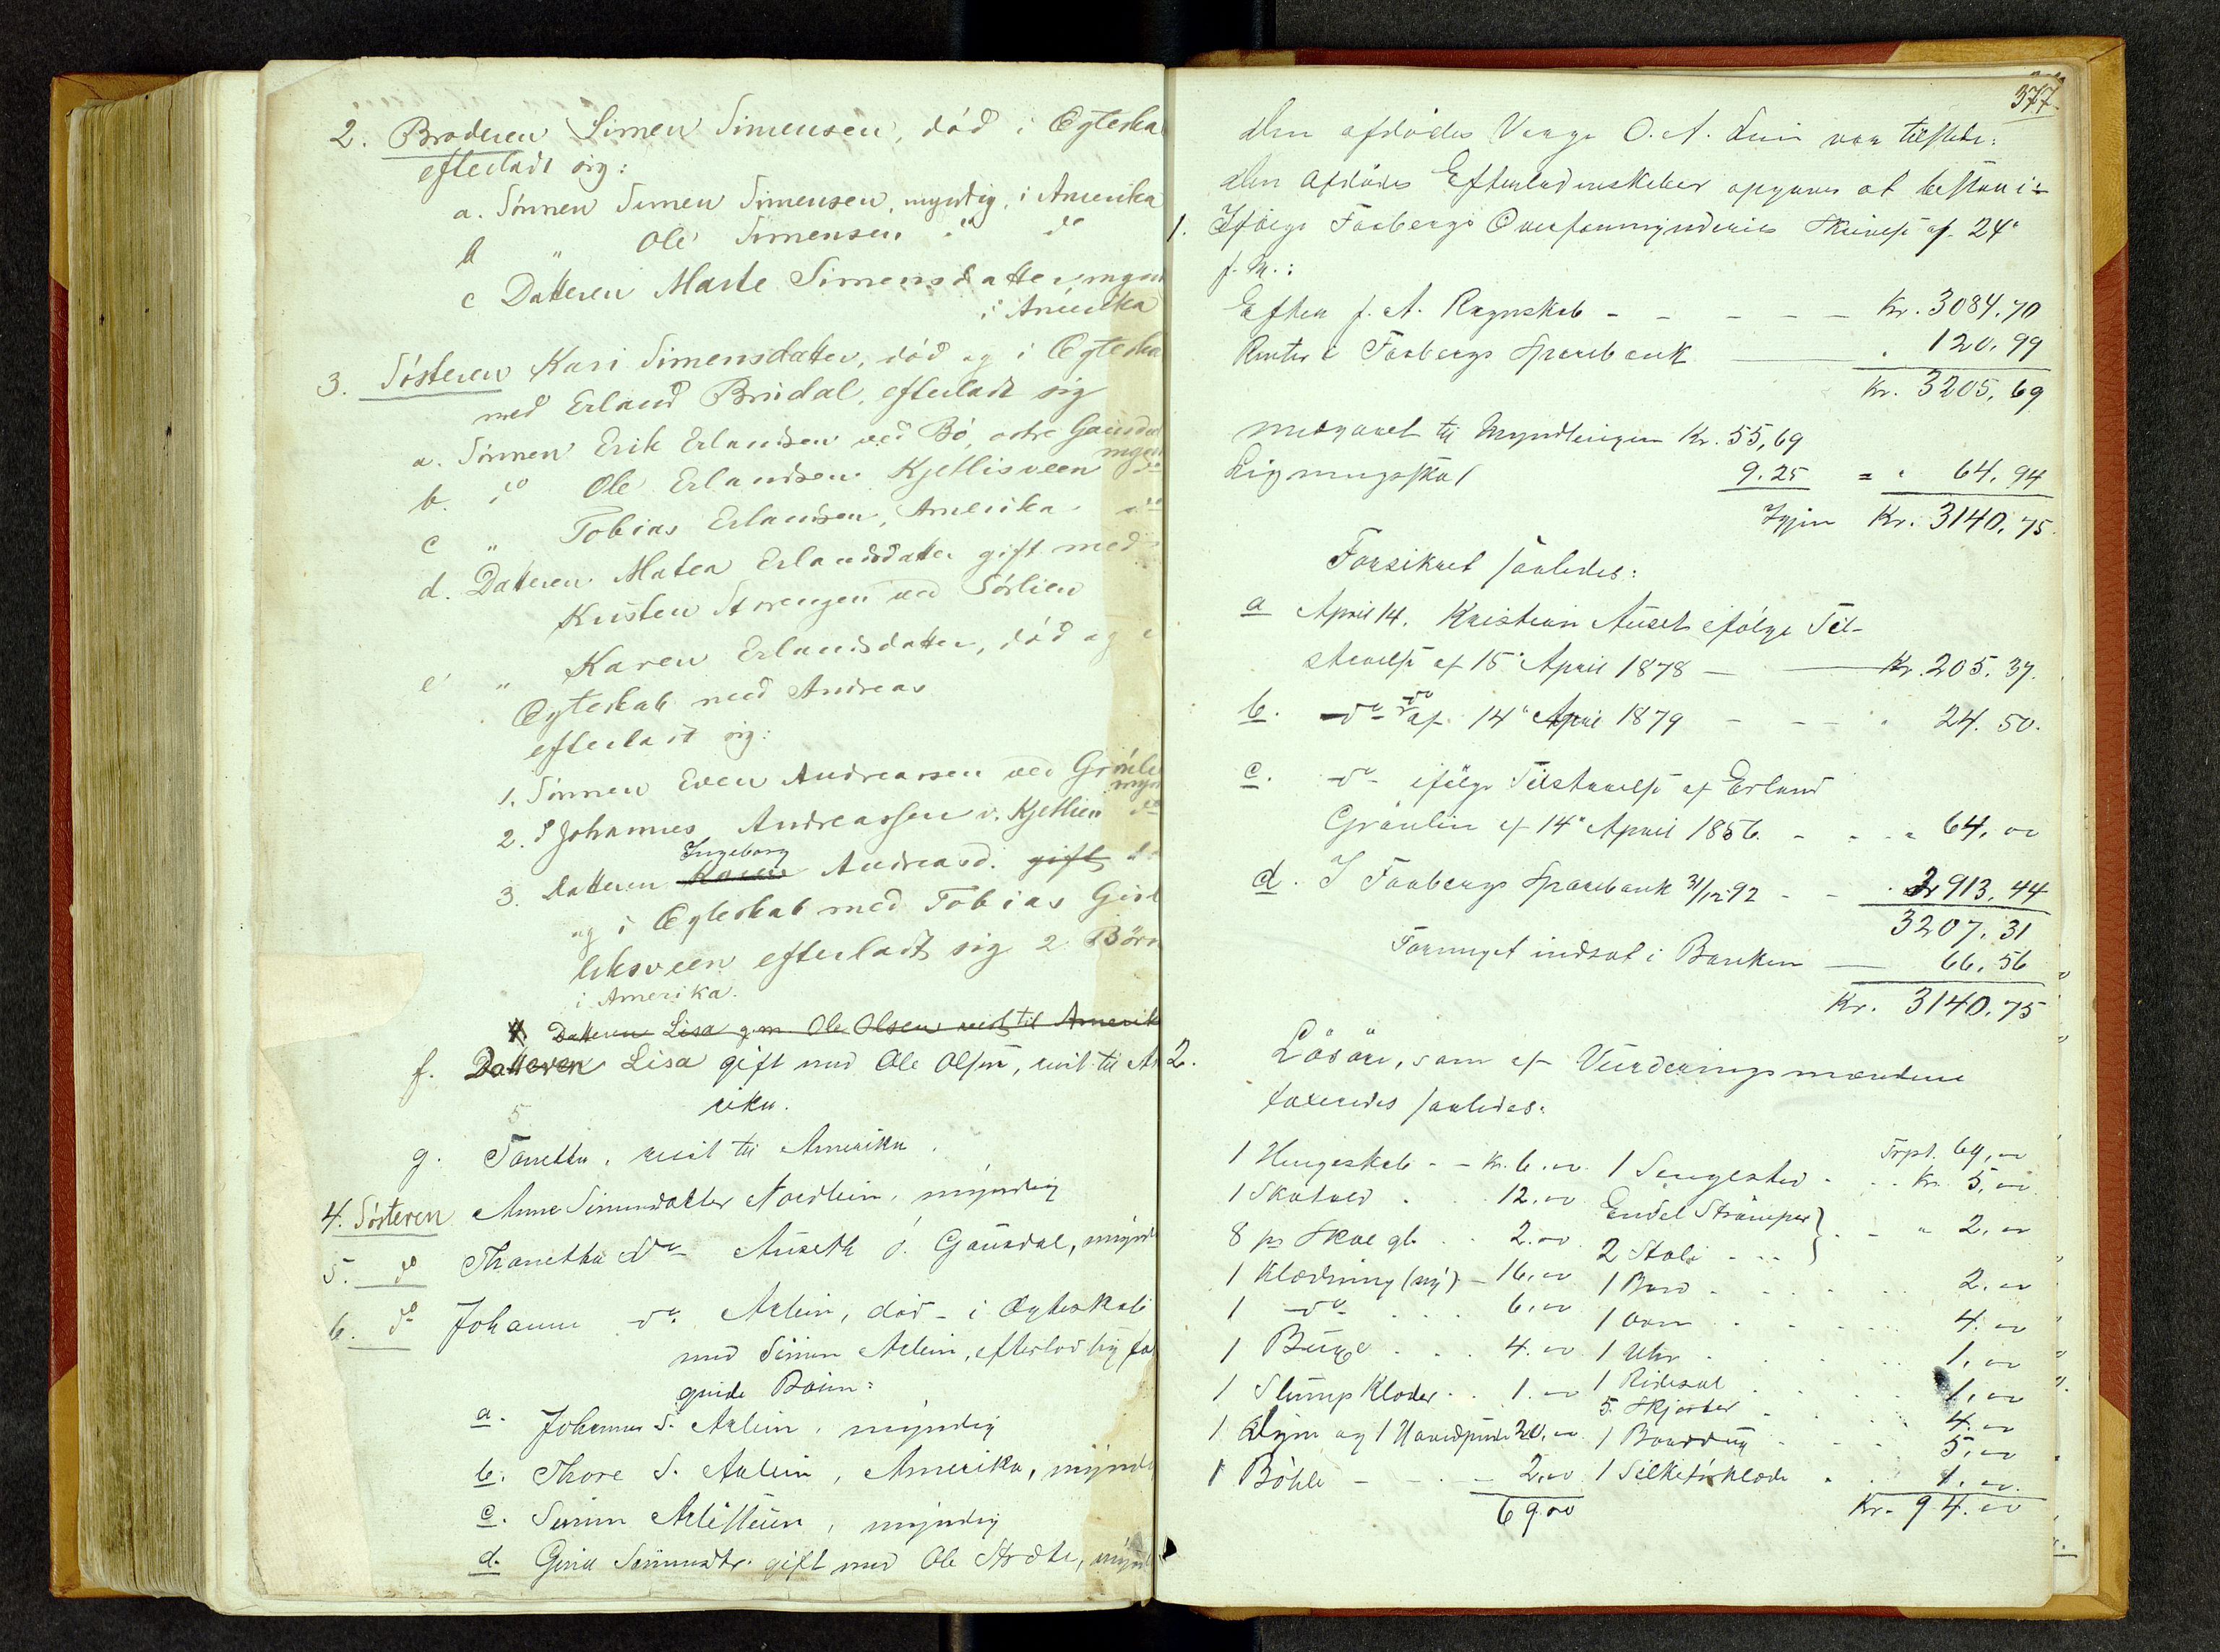 2. Broderen Simen Simensen, död i Ægteska
efterladt sig:
a. Sönnen Simen Simensen, myndig, i Amerika
b " Ole Simensen do do
c Datteren Marte Simensdatter, mynd
i Amerika
3. Søsteren Kari Simensdatter, död og i Ægteska
med Erland Brudal, efterladt sig
a. Sønnen Erik Erlandsen ved Bö, østre Gausdal
mynd
b. do Ole Erlandsen Kjetlisveen do
c " Tobias Erlandsen, Amerika do
d. Datteren Matea Erlandsdatter gift med
Kristen Storengen ved Sörlien
e " Karen Erlandsdatter, död og i
Ægteskab med Andreas
efterladt sig:
1. Sønnen Even Andreassen ved Grönlie
mynd
2. S Johannes Andreassen v. Kjetlien do
3. Datteren Karen Ingeborg Andreasd. gift do
og i Ægteskab med Tobias
efterladt sig 2 Börn
i Amerika.
4. Datteren Lisa g.m. Ole Olsen reist til Amerik
f. Datteren Lisa gift med Ole Olsen, reist til Am
rika.
5
g. Tonetta, reist til Amerika.
4. Søsteren Anne Simensdatter Nordlien, myndig
5. do Thonetha do Auseth ö. Gausdal, mynd
6. do Johanne do Aalien, död - i Ægteskab
med Simen Aalien, efterlod sig føl
gende Börn:
a. Johannes S. Aalien, myndig
b. Thore S. Aalien, Amerika, mynd
c. Simen, myndig
d. Gina Simensdtr. gift med Ole, mynd
377.
Den afdödes Værge O. A. Lien var tilstede.
Den Afdödes Efterladenskaber opgaves at bestaa i:
1. Ifölge Faabergs Overformynderies Skrivelse af 24'
f. M.:
Efter f. A. Regnskab - - - - - Kr. 3084.70
Renter i Faabergs Sparebank " 120.99
Kr. 3205,69
medgaaet til Myndlingen Kr. 55,69
Ligningsskat 9.25 = " 64.94
Igjen Kr. 3140.75.
Forsikret saaledes:
a April 14. Kristian Auset ifölge Til-
staaelse af 15' April 1878 - Kr. 205.37.
b. do do af 14' April 1879 - - - " 24.50.
c. do ifölge Tilstaaelse af Erland
Grönlien af 14' April 1856. - - " 64.00
d. I Faabergs Sparebank 31/12 92 - - " 2913.44
3207.31
Formeget indsat i Banken — 66.56
Kr. 3140.75
2. Lösöre, som af Vurderingsmændene
taxeredes saaledes:
Trpt. 69,00
1 Hengeskab - - Kr. 6.00 1 Sengested - - - Kr. 5,00
1 Skatold . . 12.00 Endel Strömper } - - " 2.00
8 pr . . 2.00 2 Stole - - -
1 Klædning (ny) - 16,00 1 Bord - - - 2.00
1 do . . . 6,00 1 Ovn - - - 4.00
1 Buxe . . . 4.00 1 Uhr - - - 1,00
1 Slump Klæder . . 1.00 1 Ridesal . . . 1,00
5 Skjorter - - - 4.00
1 Dyne og 1 Hovedpude 20.00 1 Borddug - - - 5,00
1 Bøhle - - - 2,00 1 Silketörklæde - - 1.00.
69.00 Kr. 94.00